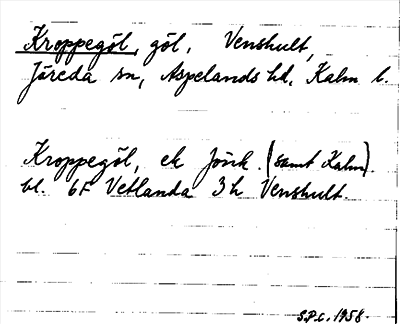 Kroppegöl, göl, Venshult,
Järeda sn, Aspelands hd, Kalm l.
Kroppegöl, ek Jönk. (samt Kalm).
bl. 6F Vetlanda 3h Venshult.
S.P.C. 1958.